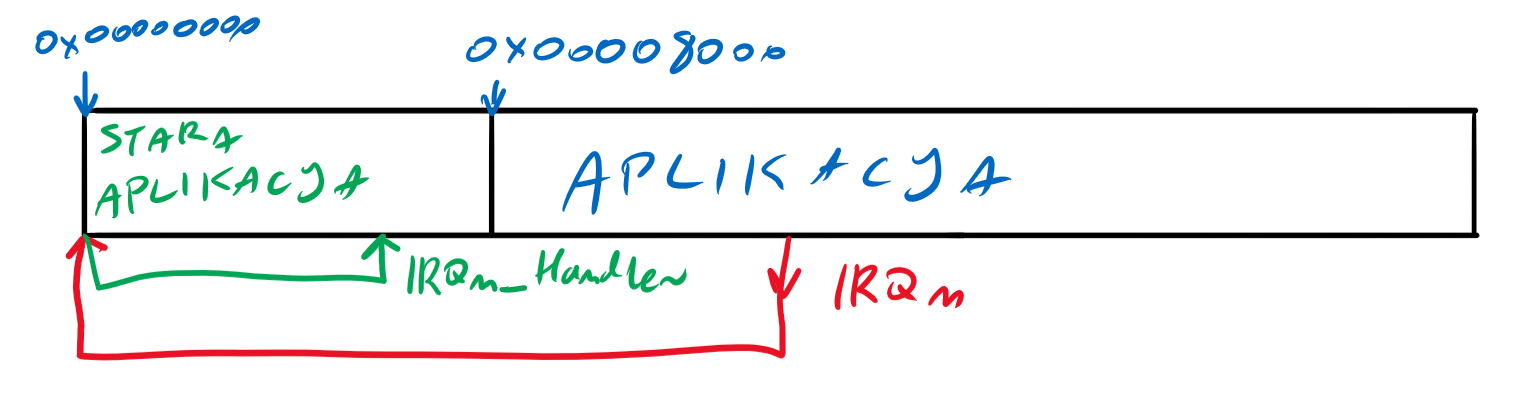 0x00000000
0x00008000
STARA
APLIKACJA
APLIKACJA
IRQn_Handler
IRQn